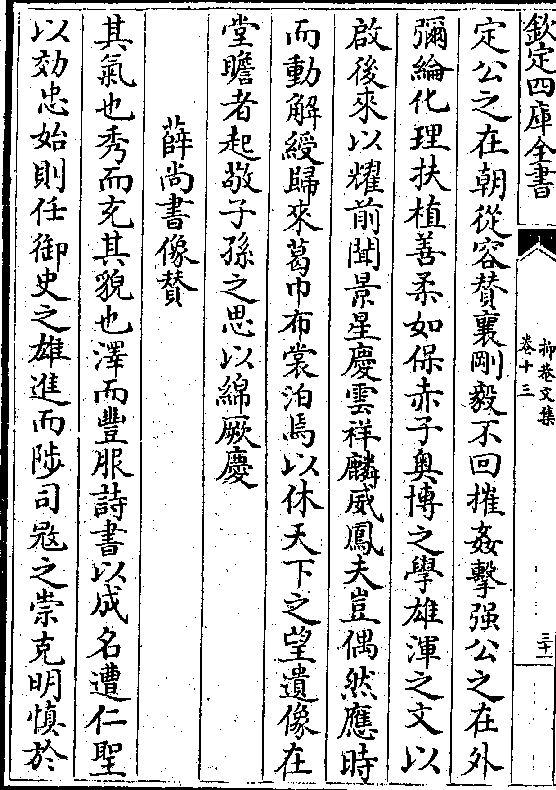 欽定四庫全書
抑菴文集
卷十三
三十一
定公之在朝從容賛襄剛毅不回摧姦擊强公之在外
彌綸化理扶植善柔如保赤子奥博之學雄渾之文以
啟後來以耀前聞景星慶雲祥麟威鳳夫豈偶然應時
而動解綬歸來葛巾布裳泊焉以休天下之望遺像在
堂瞻者起敬子孫之思以綿厥慶
薛尚書像賛
其氣也秀而充其貌也澤而豐服詩書以成名遭仁聖
以効忠始則任御史之雄進而陟司㓂之崇克明慎於